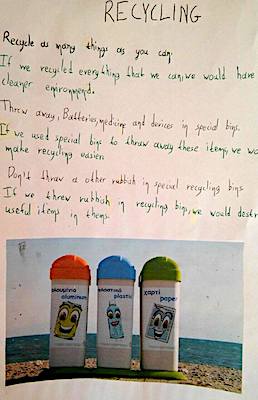 RECYCLING
Recycle as many things as you can.
If we recycled everything that we can, we would have
cleaner environment.
Throw away, Batteries, medicine and devices in special bins.
If we used special bins to throw away these items, we wo
make recycling easier.
Don't throw a other rubbish in special recycling bins
If we threw rubbish in recycling bins, we would destr
useful items in them.
αλουμίνιο
aluminum
πλαστικό
plastic
χαρτί
paper